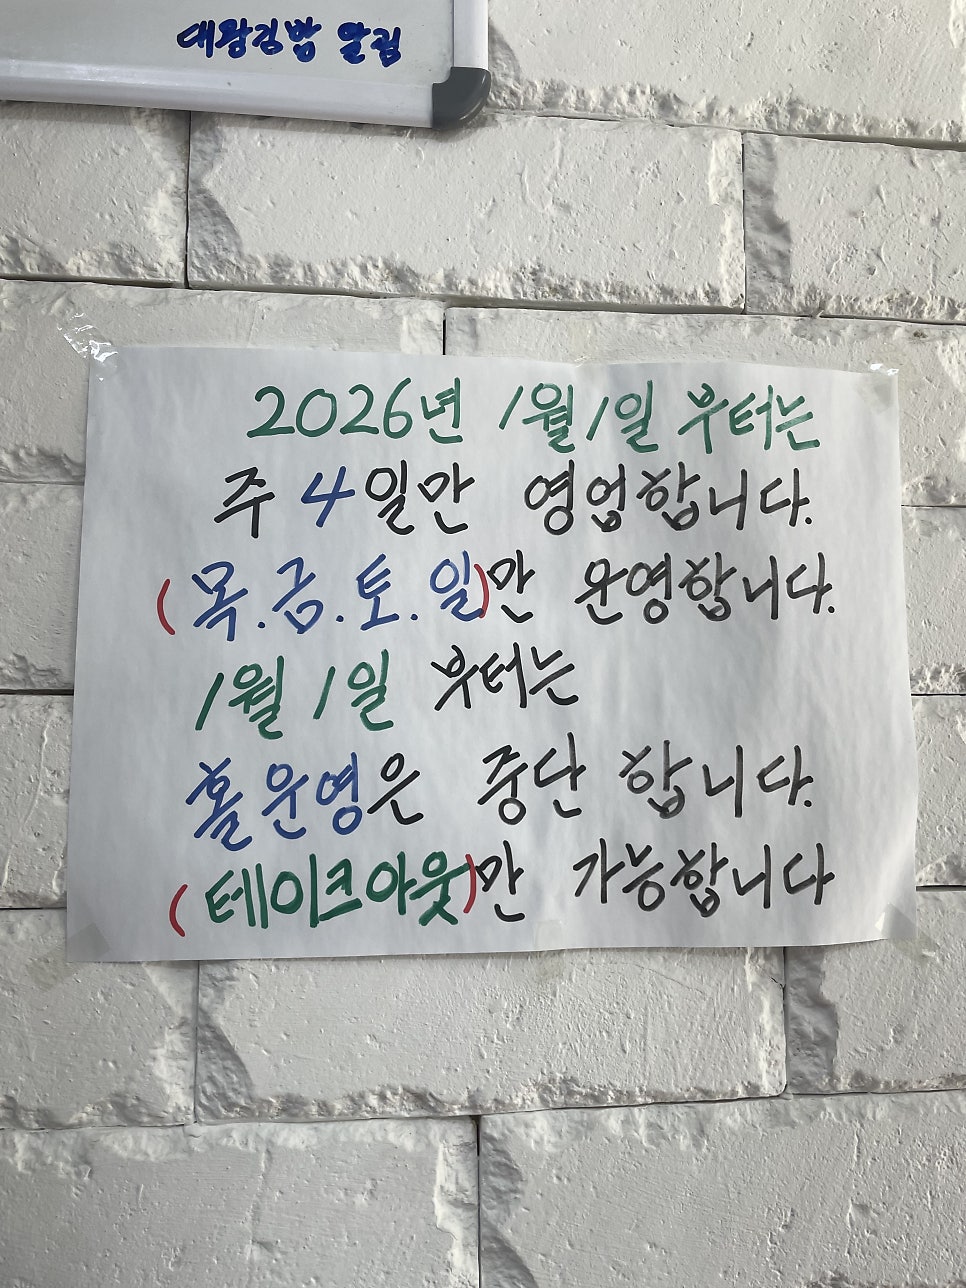 대왕김밥 알림
2026년 1월1일 부터는
주 4일만 영업합니다.
(목.금.토.일)만 운영합니다.
1월 1일 부터는
홀운영은 중단 합니다.
(테이크아웃)만 가능합니다